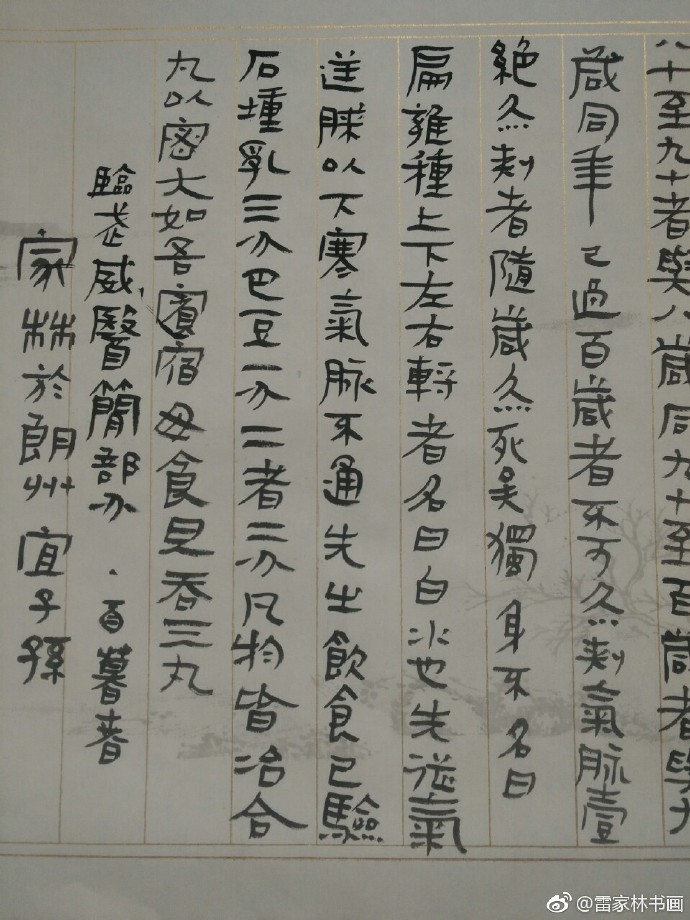 八十至九十者與八歲同九十至百歲者與九
歲同年已過百歲者不可灸刺氣脉壹
絕灸刺者隨歲灸死矣獨身不名曰
扁雜種上下左右轉者名曰白水也先
以下寒氣脉不通先生飲食已驗
石𡍮乳三分巴豆一分二者二分凡物皆冶合
丸以密大如吾實宿毋食旦吞三丸
臨武威醫簡部分 百暮春
家林於朗州宜子孫
@雷家林书画